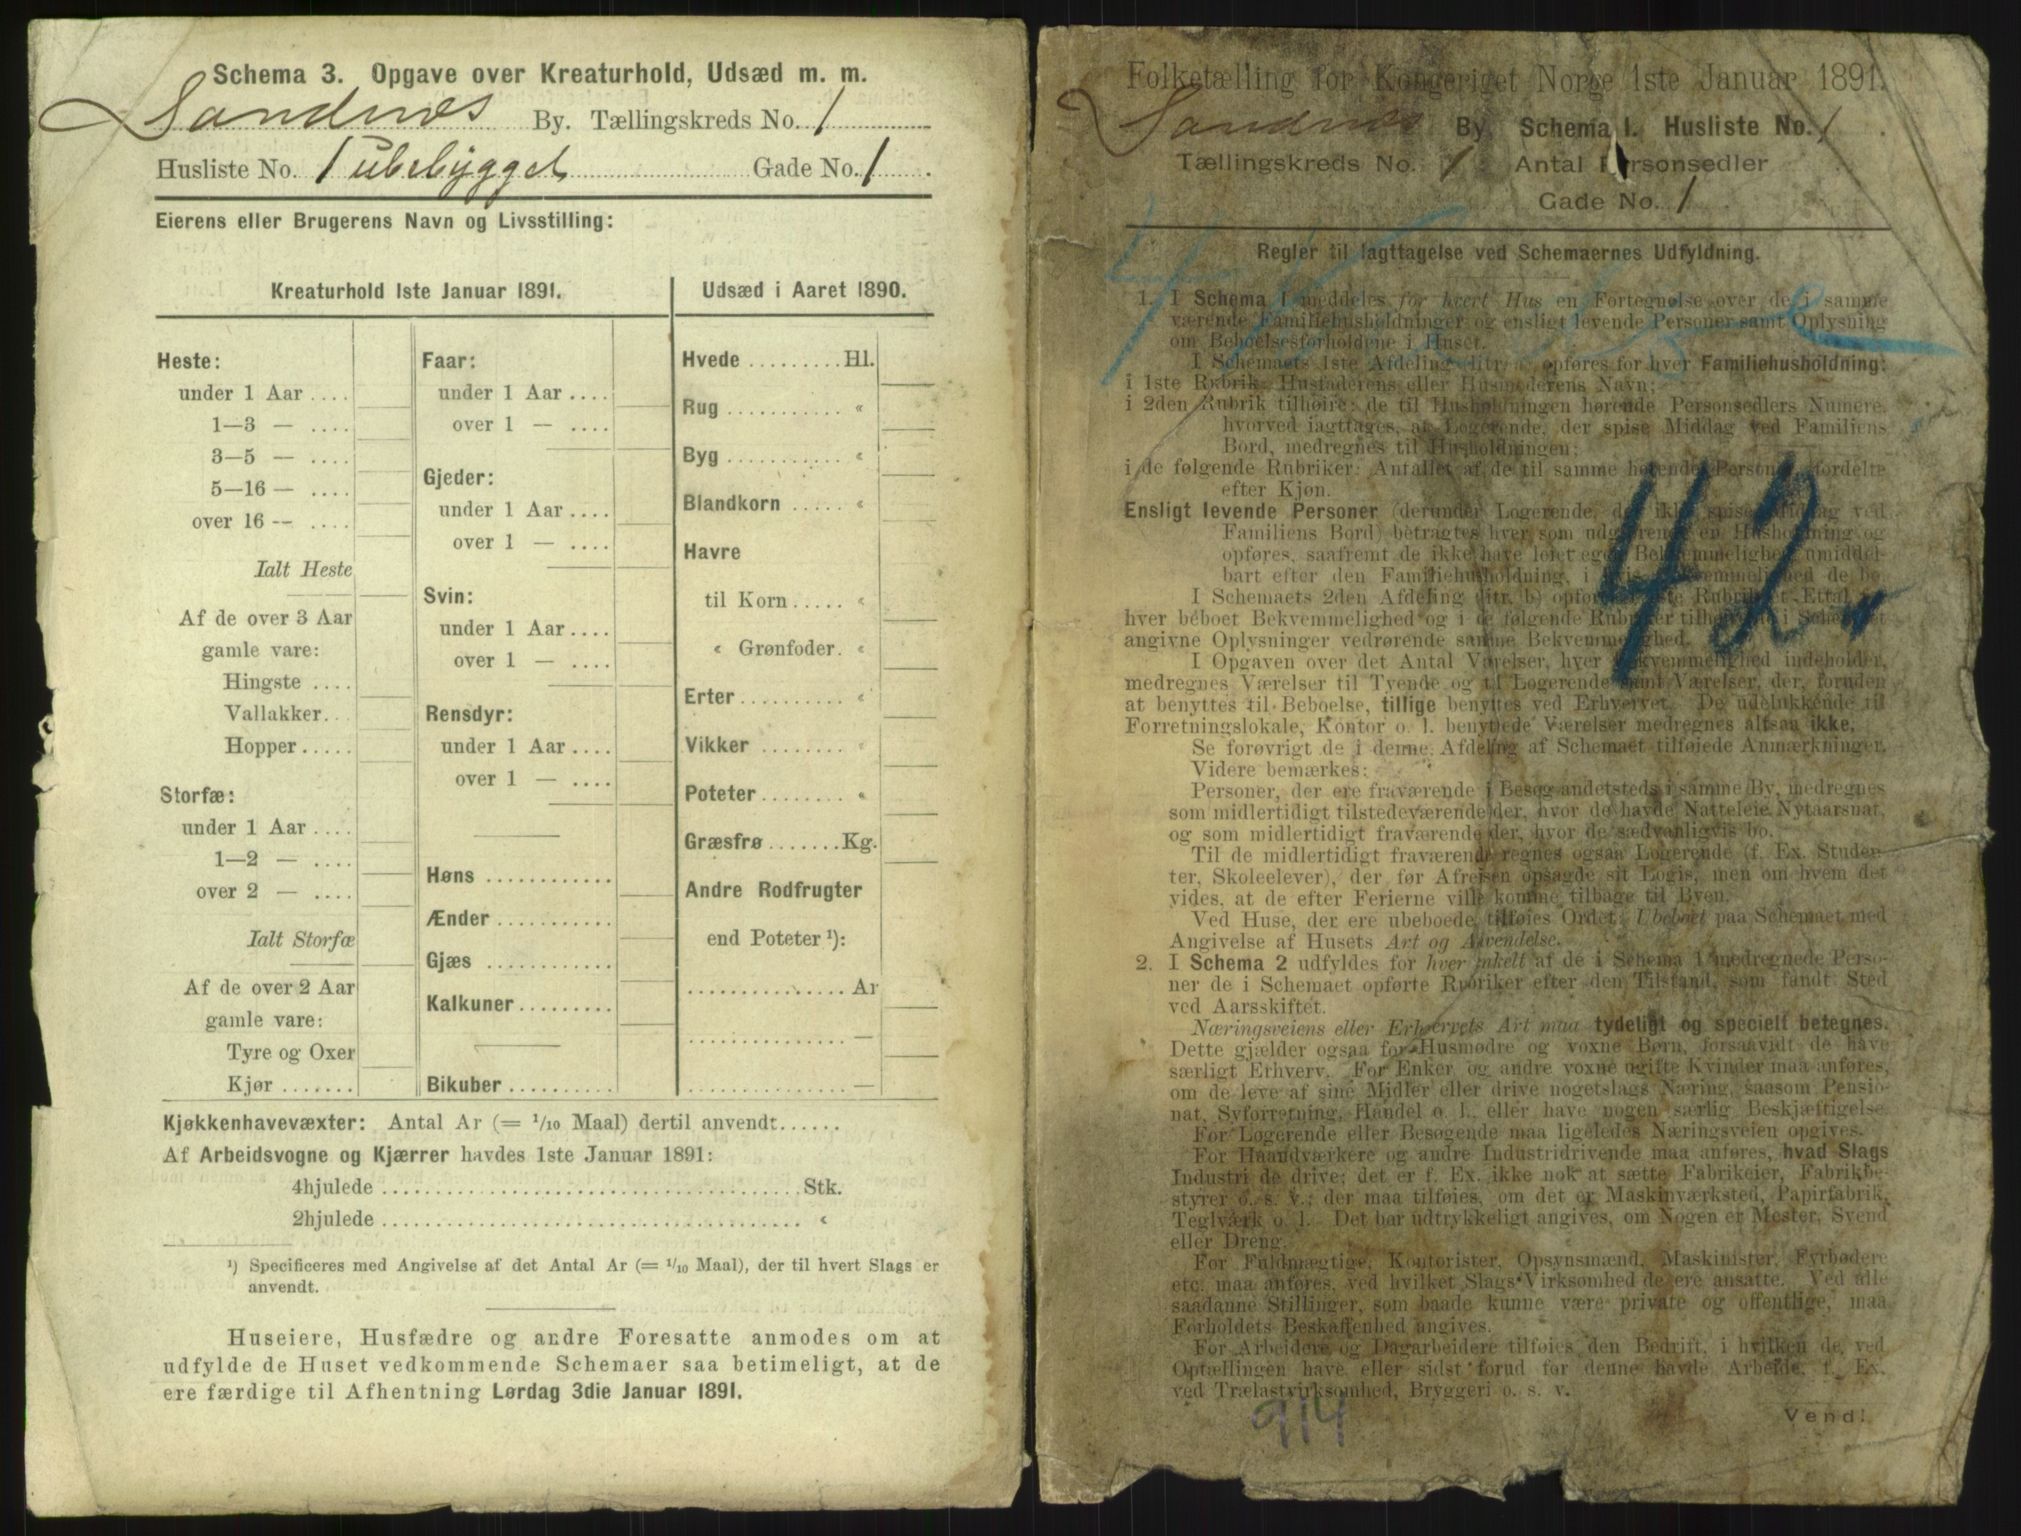 Schema 3. Opgave over Kreaturhold, Udsæd m. m.
Sandnæs By. Tællingskreds No. 1
Husliste No. 1 ubebygget Gade No. 1.
Eierens eller Brugerens Navn og Livsstilling:
Kreaturhold 1ste Januar 1891.
Heste:
under 1 Aar ....
1—3 — ....
3—5 — ....
5—16 — ....
over 16 -- ....
Ialt Heste
Af de over 3 Aar
gamle vare:
Hingste ....
Vallakker..
Hopper.....
Storfæ:
under 1 Aar ....
1—2 — ....
over 2 — ....
Ialt Storfæ
Af de over 2 Aar
gamle vare:
Tyre og Oxer
Kjør .......
Faar:
under 1 Aar ....
over 1 — ....
Gjeder:
under 1 Aar ....
over 1 — ....
Svin:
under 1 Aar ....
over 1 — ....
Rensdyr:
under 1 Aar ....
over 1 — ....
Høns ............
Ænder ..........
Gjæs ............
Kalkuner.........
Bikuber ..........
Udsæd i Aaret 1890.
Hvede .........Hl.
Rug ........... «
Byg ........... «
Blandkorn ..... «
Havre
til Korn..... «
« Grønfoder. «
Erter.......... «
Vikker ........ «
Poteter........ «
Græsfrø .......Kg.
Andre Rodfrugter
end Poteter ¹):
............... Ar
............... —
............... —
Kjøkkenhavevæxter: Antal Ar (= 1/10 Maal) dertil anvendt......
Af Arbeidsvogne og Kjærrer havdes 1ste Januar 1891:
4hjulede ........................................Stk.
2hjulede ........................................ «
¹) Specificeres med Angivelse af det Antal Ar (= 1/10 Maal), der til hvert Slags er
anvendt.
Huseiere, Husfædre og andre Foresatte anmodes om at
udfylde de Huset vedkommende Schemaer saa betimeligt, at de
ere færdige til Afhentning Lørdag 3die Januar 1891.
Folketælling for Kongeriget Norge 1ste Januar 1891.
Sandnæs By. Schema 1. Husliste No. 1.
Tællingskreds No. 1 Antal Personsedler
Gade No. 1
Regler til Iagttagelse ved Schemaernes Udfyldning.
1. I Schema 1 meddeles for hvert Hus en Fortegnelse over de i samme
værende Familiehusholdninger og ensligt levende Personer samt Oplysning
om Beboelsesforholdene i Huset.
I Schemaets 1ste Afdeling (litr. a) opføres for hver Familiehusholdning:
i 1ste Rubrik: Husfaderens eller Husmoderens Navn;
i 2den Rubrik tilhøire: de til Husholdningen hørende Personsedlers Numere,
hvorved iagttages, at Logerende, der spise Middag ved Familiens
Bord, medregnes til Husholdningen;
i de følgende Rubriker: Antallet af de til samme hørende Personer, fordelte
efter Kjøn.
Ensligt levende Personer (derunder Logerende, der ikke spise Middag ved
Familiens Bord) betragtes hver som udgjørende en Husholdning og
opføres, saafremt de ikke have leiet egen Bekvemmelighed, umiddel-
bart efter den Familiehusholdning, i hvis Bekvemmelighed de bo.
I Schemaets 2den Afdeling (litr. b) opføres i 1ste Rubrik et Ettal for
hver beboet Bekvemmelighed og i de følgende Rubriker tilhøire de i Schemaet
angivne Oplysninger vedrørende samme Bekvemmelighed.
I Opgaven over det Antal Værelser, hver Bekvemmelighed indeholder,
medregnes Værelser til Tyende og til Logerende samt Værelser, der, foruden
at benyttes til Beboelse, tillige benyttes ved Erhvervet. De udelukkende til
Forretningslokale, Kontor o. l. benyttede Værelser medregnes altsaa ikke.
Se forøvrigt de i denne Afdeling af Schemaet tilføiede Anmærkninger.
Videre bemærkes:
Personer, der ere fraværende i Besøg andetsteds i samme By, medregnes
som midlertidigt tilstedeværende der, hvor de havde Natteleie Nytaarsnat,
og som midlertidigt fraværende der, hvor de sædvanligvis bo.
Til de midlertidigt fraværende regnes ogsaa Logerende (f. Ex. Studen-
ter, Skoleelever), der før Afreisen opsagde sit Logis, men om hvem det
vides, at de efter Ferierne ville komme tilbage til Byen.
Ved Huse, der ere ubeboede, tilføies Ordet: Ubeboet paa Schemaet med
Angivelse af Husets Art og Anvendelse.
2. I Schema 2 udfyldes for hver enkelt af de i Schema 1 medregnede Perso-
ner de i Schemaet opførte Rubriker efter den Tilstand, som fandt Sted
ved Aarsskiftet.
Næringsveiens eller Erhvervets Art maa tydeligt og specielt betegnes.
Dette gjælder ogsaa for Husmødre og voxne Børn, forsaavidt de have
særligt Erhverv. For Enker og andre voxne ugifte Kvinder maa anføres,
om de leve af sine Midler eller drive nogetslags Næring, saasom Pensio-
nat, Syforretning, Handel o. l., eller have nogen særlig Beskjæftigelse.
For Logerende eller Besøgende maa ligeledes Næringsveien opgives.
For Haandværkere og andre Industridrivende maa anføres, hvad Slags
Industri de drive; det er f. Ex. ikke nok at sætte Fabrikeier, Fabrikbe-
styrer o. s. v.; der maa tilføies, om det er Maskinværksted, Papirfabrik,
Teglværk o. l. Det bør udtrykkeligt angives, om Nogen er Mester, Svend
eller Dreng.
For Fuldmægtige, Kontorister, Opsynsmænd, Maskinister, Fyrbødere
etc. maa anføres, ved hvilket Slags Virksomhed de ere ansatte. Ved alle
saadanne Stillinger, som baade kunne være private og offentlige, maa
Forholdets Beskaffenhed angives.
For Arbeidere og Dagarbeidere tilføies den Bedrift, i hvilken de ved
Optællingen have eller sidst forud for denne havde Arbeide, f. Ex.
ved Trælastvirksomhed, Bryggeri o. s. v.
Vend!
42
914